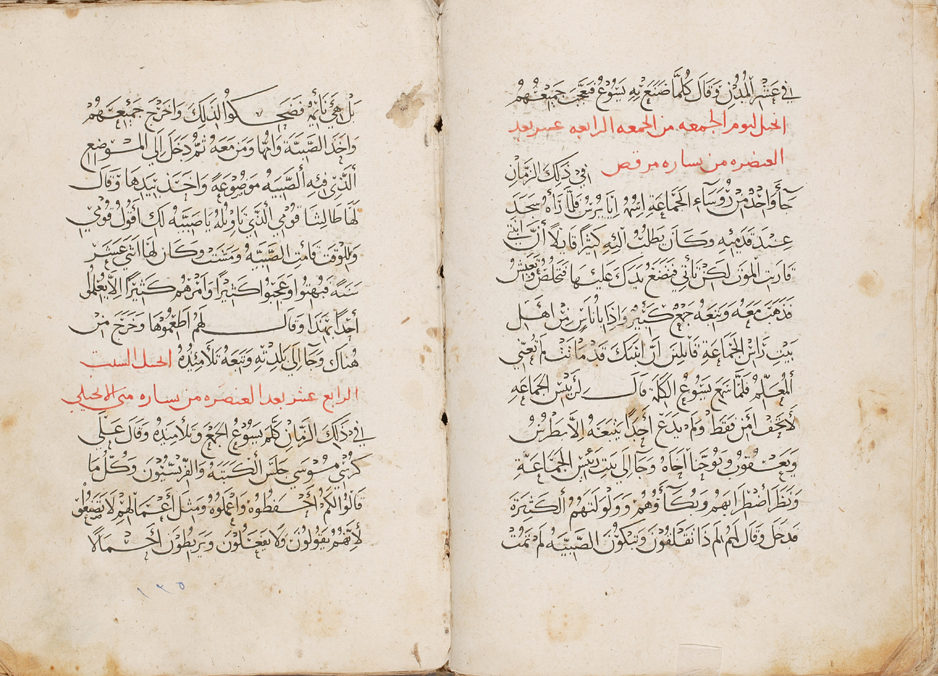 في عشر المدن وقال كلما صنع به يسوع فتعجب جميعهم
انجيل يوم الجمعه من الجمعه الرابعه عشر بعد
العنصره من بساره مرقص في ذلك الزمان
جآ واحد من رؤساء الجماعة اسمه يايرس فلما رآه سجد
عند قدميه وكان يطلب اليه كثيرًا قايلًا أن ابنة
قاربت الموت لكن تأتي فتضع يدك عليها فتخلص وتعيش
فذهب معه وتبعه جمع كثير واذا بأناس من اهل
بيت رأس الجماعة قايلين ان ابنتك قد ماتت فلم تعني
المعلم فلما سمع يسوع الكلمة قال لريس الجماعه
لا تخف امن فقط ولم يدع أحدًا يتبعه الا بطرس
ويعقوب ويوحنا اخاه وجآ الى بيت رئيس الجماعة
ونظر اضطرابهم وبكآوهم وولولتهم الكثيرة
فدخل وقال لهم لم ذا تقلقون وتبكون الصبيه لم تمت
بل هي نايمة فضحكوا لذلك واخرج جميعهم
واخذ الصبية وامها ومن معه ثم دخل الى الموضع
الذي فيه الصبيه موضوعة واخذ بيدها وقال
لها طاليثا قومي الذي تاويله يا صبيه لك اقول قومي
وللوقت قامت الصبيه ومشت وكان لها اثني عشر
سنة فبهتوا وعجبوا كثيرًا وامرهم كثيرًا الا يعلموا
أحدًا بهذا وقال لهم اطعموها وخرج من
هناك وجآ الى بلدته وتبعه تلاميذه انجيل السبت
الرابع عشر بعد العنصره من بساره متى الانجيلي
في ذلك الزمان كلم يسوع الجمع وتلاميذه وقال على
كرسي موسى جلس الكتبة والفريسيون وكل ما
قالوا لكم احفظوه واعملوه ومثل أعمالهم لا تصنعوا
لأنهم يقولون ولا يفعلون ويربطون أحمالًا
١٣٥